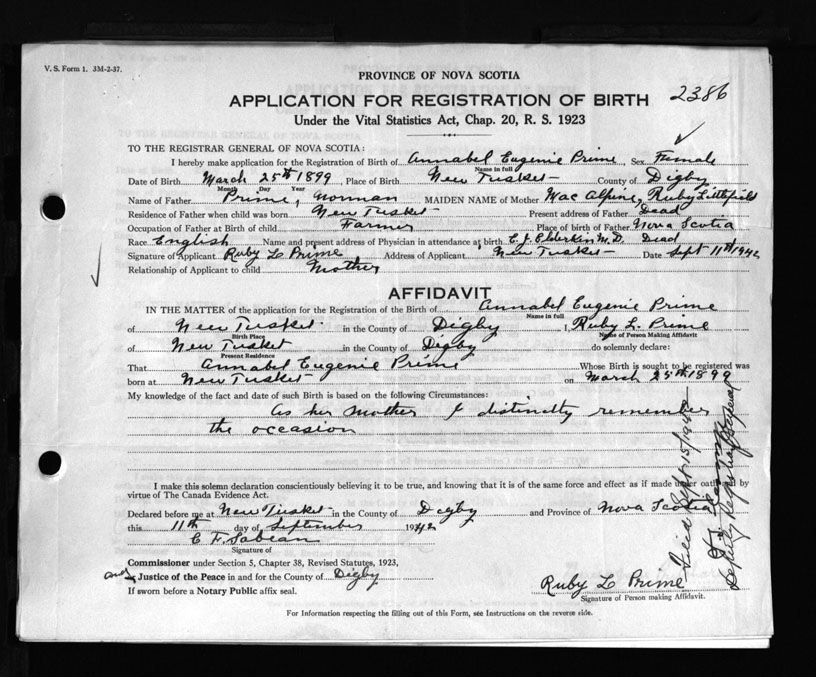 V. S. Form 1. 3M-2-37.
PROVINCE OF NOVA SCOTIA
APPLICATION FOR REGISTRATION OF BIRTH 2386
Under the Vital Statistics Act, Chap. 20, R. S. 1923
TO THE REGISTRAR GENERAL OF NOVA SCOTIA:
I hereby make application for the Registration of Birth of Annabel Eugenie Prime, Sex Female
Name in full
Date of Birth March 25th 1899, Place of Birth New Tusket County of Digby
Month Day Year
Name of Father Prime, Norman MAIDEN NAME of Mother Mac Alpine, Ruby Littlefield
Residence of Father when child was born New Tusket Present address of Father Dead
Occupation of Father at Birth of child Farmer Place of birth of Father Nova Scotia
Race English Name and present address of Physician in attendance at birth E. J. Elderkin M.D. Dead
Signature of Applicant Ruby L Prime Address of Applicant New Tusket Date Sept 11th 1942
Relationship of Applicant to child Mother
AFFIDAVIT
IN THE MATTER of the application for the Registration of the Birth of Annabel Eugenie Prime
Name in full
of New Tusket in the County of Digby I, Ruby L. Prime
Birth Place Name of Person Making Affidavit
of New Tusket in the County of Digby do solemnly declare:
Present Residence
That Annabel Eugenie Prime Whose Birth is sought to be registered was
born at New Tusket on March 25th 1899
My knowledge of the fact and date of such Birth is based on the following Circumstances:
As her Mother I distinctly remember
the occasion
I make this solemn declaration conscientiously believing it to be true, and knowing that it is of the same force and effect as if made under oath and by
virtue of The Canada Evidence Act.
Declared before me at New Tusket in the County of Digby and Province of Nova Scotia
this 11th day of September 1942
C F. Sabean
Signature of
Commissioner under Section 5, Chapter 38, Revised Statutes, 1923,
and Justice of the Peace in and for the County of Digby
If sworn before a Notary Public affix seal.
Ruby L Prime
Signature of Person making Affidavit.
For Information respecting the filling out of this Form, see Instructions on the reverse side.
Filed Sept 15/1942
Deputy Registrar General